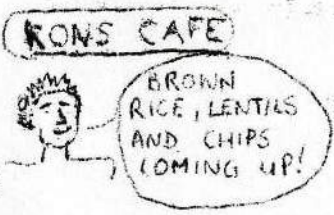 RONS CAFE
BROWN
RICE, LENTILS
AND CHIPS
COMING UP!